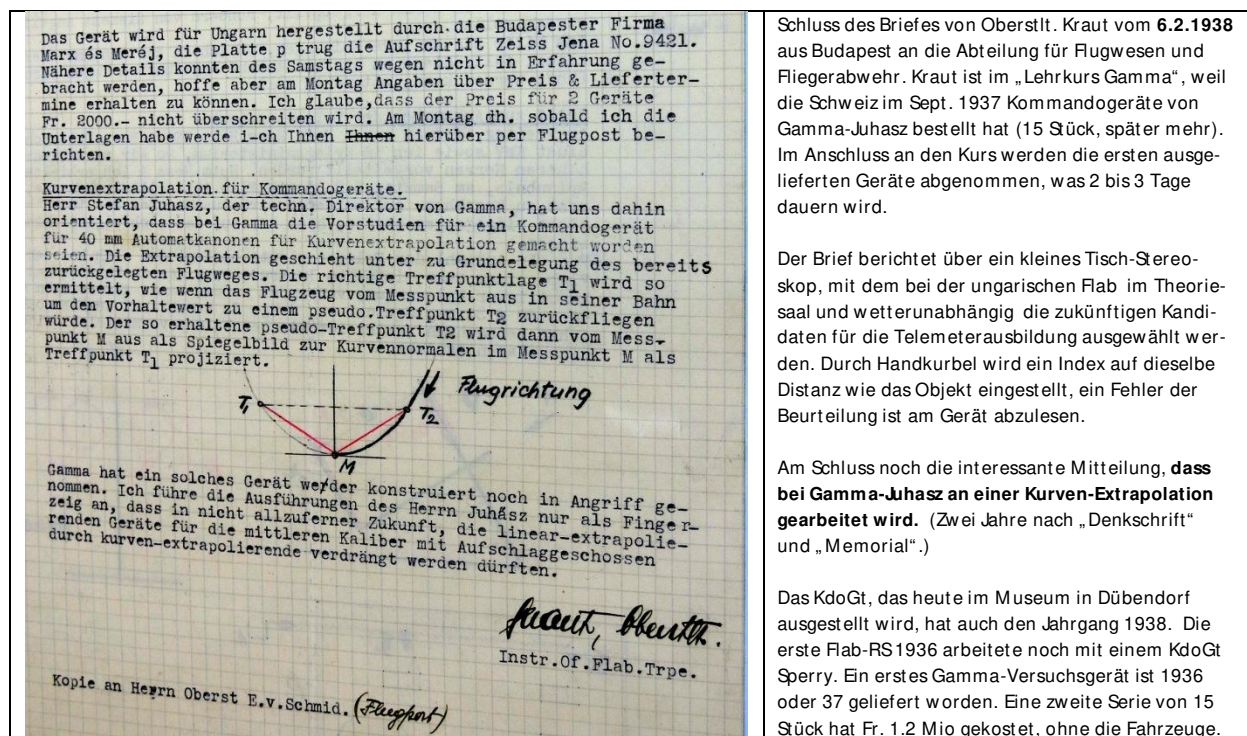 Das Gerät wird für Ungarn hergestellt durch die Budapester Firma
Marx és Meréj, die Platte p trug die Aufschrift Zeiss Jena No.9421.
Nähere Details konnten des Samstags wegen nicht in Erfahrung ge-
bracht werden, hoffe aber am Montag Angaben über Preis & Liefertermine
mine erhalten zu können. Ich glaube,dass der Preis für 2 Geräte
Fr. 2000.- nicht überschreiten wird. Am Montag dh. sobald ich die
Unterlagen habe werde i-ch Ihnen Ihnen hierüber per Flugpost be-
richten.
Kurvenextrapolation für Kommandogeräte.
Herr Stefan Juhasz, der techn. Direktor von Gamma, hat uns dahin
orientiert, dass bei Gamma die Vorstudien für ein Kommandogerät
für 40 mm Automatkanonen für Kurvenextrapolation gemacht worden
seien. Die Extrapolation geschieht unter zu Grundelegung des bereits
zurückgelegten Flugweges. Die richtige Treffpunktlage T1 wird so
ermittelt, wie wenn das Flugzeug vom Messpunkt aus in seiner Bahn
um den Vorhaltewert zu einem pseudo.Treffpunkt T2 zurückfliegen
würde. Der so erhaltene pseudo-Treffpunkt T2 wird dann vom Mess-
punkt M aus als Spiegelbild zur Kurvennormalen im Messpunkt M als
Treffpunkt T1 projiziert.
Flugrichtung
T1
T2
M
Gamma hat ein solches Gerät weder konstruiert noch in Angriff ge-
nommen. Ich führe die Ausführungen des Herrn Juhász nur als Finger-
zeig an, dass in nicht allzuferner Zukunft, die linear-extrapolie-
renden Geräte für die mittleren Kaliber mit Aufschlaggeschossen
durch kurven-extrapolierende verdrängt werden dürften.
Kraut, Oberstlt.
Instr.Of.Flab.Trpe.
Kopie an Herrn Oberst E.v.Schmid. (Flugpost)
Schluss des Briefes von Oberstlt. Kraut vom 6.2.1938
aus Budapest an die Abteilung für Flugwesen und
Fliegerabwehr. Kraut ist im „Lehrkurs Gamma“, weil
die Schweiz im Sept. 1937 Kommandogeräte von
Gamma-Juhasz bestellt hat (15 Stück, später mehr).
Im Anschluss an den Kurs werden die ersten ausge-
lieferten Geräte abgenommen, was 2 bis 3 Tage
dauern wird.
Der Brief berichtet über ein kleines Tisch-Stereo-
skop, mit dem bei der ungarischen Flab im Theorie-
saal und wetterunabhängig die zukünftigen Kandi-
daten für die Telemeterausbildung ausgewählt wer-
den. Durch Handkurbel wird ein Index auf dieselbe
Distanz wie das Objekt eingestellt, ein Fehler der
Beurteilung ist am Gerät abzulesen.
Am Schluss noch die interessante Mitteilung, dass
bei Gamma-Juhasz an einer Kurven-Extrapolation
gearbeitet wird. (Zwei Jahre nach „Denkschrift“
und „Memorial“.)
Das KdoGt, das heute im Museum in Dübendorf
ausgestellt wird, hat auch den Jahrgang 1938. Die
erste Flab-RS 1936 arbeitete noch mit einem KdoGt
Sperry. Ein erstes Gamma-Versuchsgerät ist 1936
oder 37 geliefert worden. Eine zweite Serie von 15
Stück hat Fr. 1.2 Mio gekostet, ohne die Fahrzeuge.